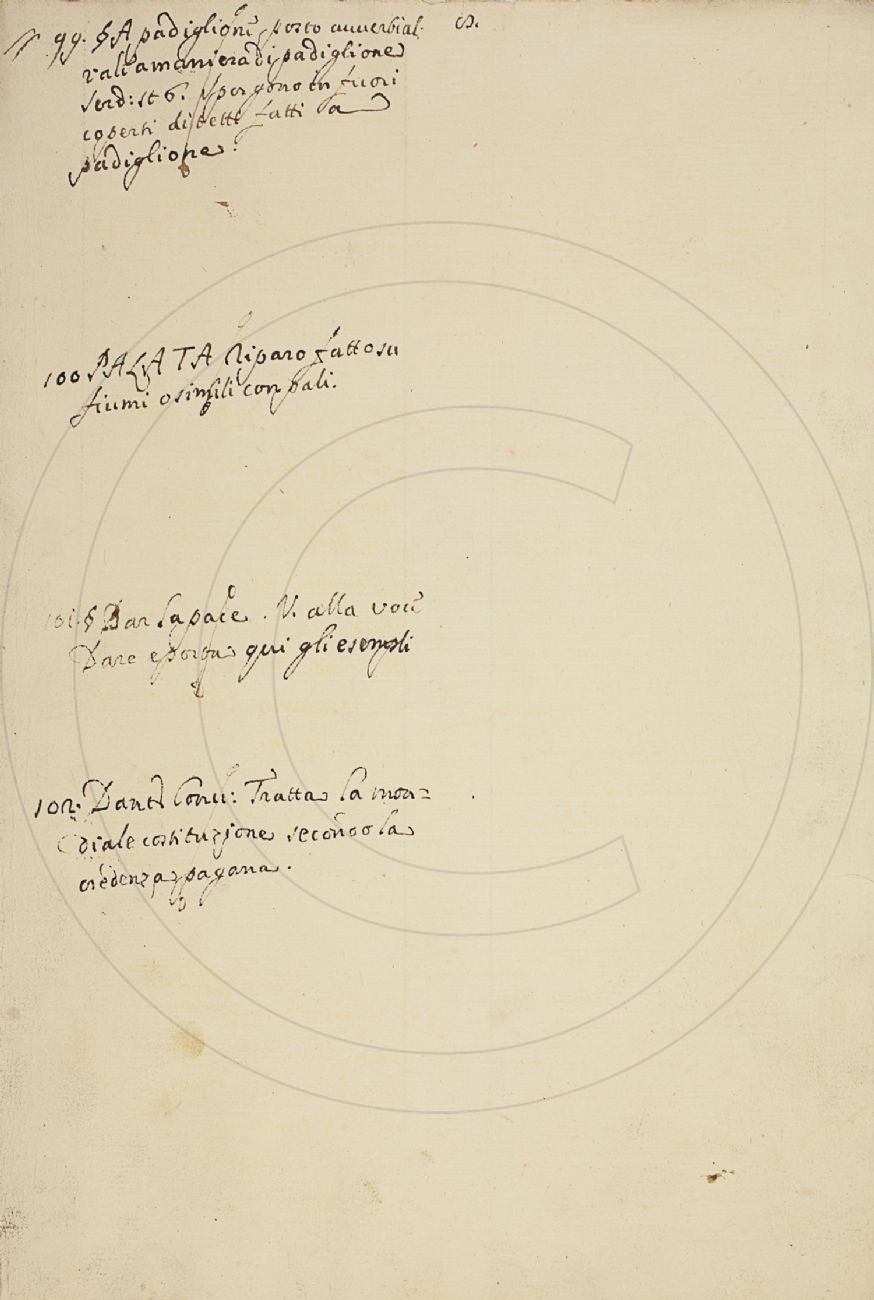 99. § A padiglione, posto avverbial.
vale a maniera di padiglione
Serd: st 6. Sporgono in fuori
coperti di tetti fatti a
padiglione.
100 PALATA Riparo fatto su
fiumi o simili con pali.
101. § Dar la pace. V. alla voce
Dare e porta qui gli esempli
102. Dante Conv: Tratta la mon=
diale costituzione secondo la
credenza pagana.